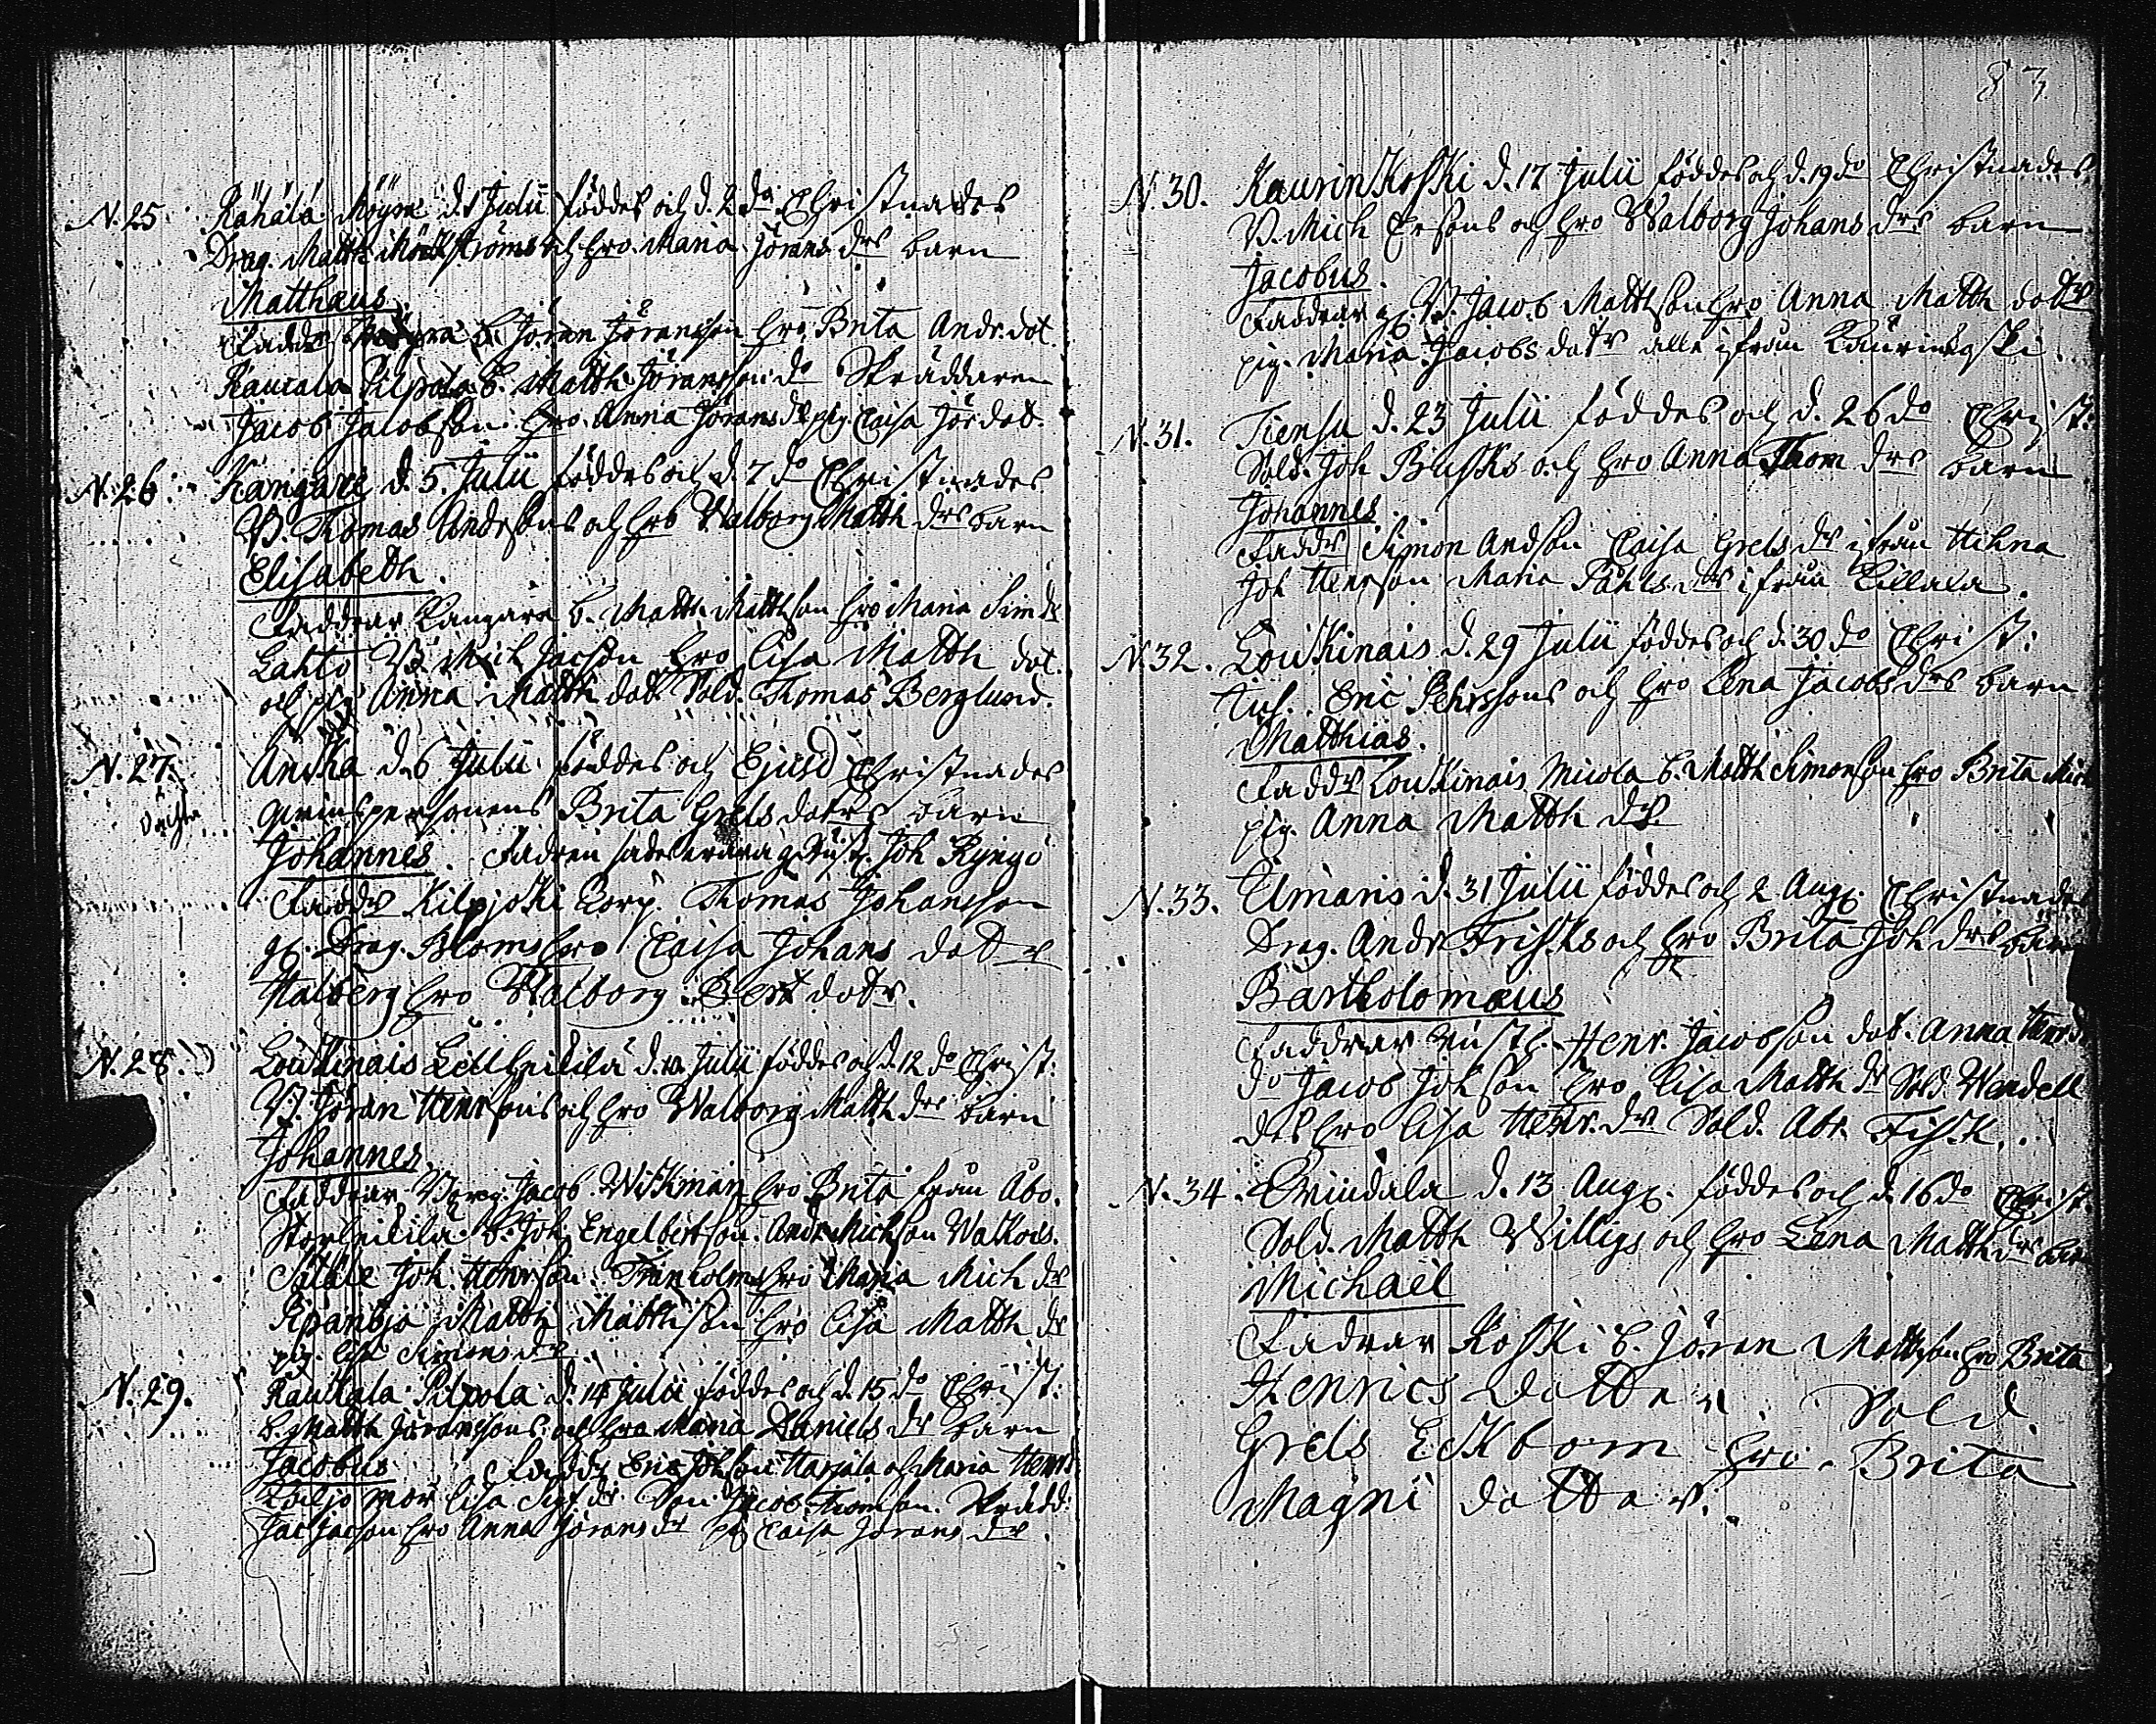 N. 25 Kähälä Möysä d. 1 Julii föddes och d. 2 do Christnades
Drag. Matth. Mörtströms och hro. Maria Jörans drs barn
Matthæus.
Faddr b. Jöran Jöransson hro. Brita Andr. dot.
Kaukala Pilpola b. Matth Jöransson do Skräddaren
Jacob Jacobsson hro. Anna Jörans dr pig. Caisa Jör dot.
N. 26. Kangare d. 5. Julii föddes och d. 7 do Christnades
B. Thomas Andersons och hro Walborg Matth drs barn
Elisabeth.
Faddrar Kangare b. Matth. Matthson hro Maria Sim dr
Lahto B. Mich Jacson hro Lisa Matth dot.
och pig Anna Matth dott Sold. Thomas Berglund.
N. 27. Anska d. 6 Julii föddes och Ejusd Christnades
qvinspersonens Brita Grels dotrs barn
Johannes. Fadren sades vara Joh Kyngö
Faddr Kilpjoki Corp. Thomas Johansson
Drag. Bloms hro Caisa Johans dotr
Halberg hro Walborg Bert dotr.
N. 28. Louckinais d. 10. Julii föddes och d. 12 do Christ:
B. Jöran Henrsons och hro Walborg Matth drs barn
Johannes
Faddrar Jacob Wickman hro Brita från Åbo.
b. Joh Engelbertson. Andr Michson Walkois.
Joh. Henrson. Tranholms hro Maria Mich dr
Matth Matthson hro Lisa Matth dr
pig. Lisa Simons dr
N. 29. Kaukala Pilpola d. 14 Julii föddes och d. 15 do Christ:
b. Matth Jöranssons och hro Maria Daniels dr barn
Jacobus Faddr Eric Johson Harjala och Maria Henr d
mor Lisa Sigf dr Son Jacob Thomson. Skrädd:
Jac Jacson hro Anna Jörans dr pig Caisa Jörans dr.
83
N. 30. Kaurinkoski d. 17 Julii föddes och d. 19 do Christnades
B. Mich Ersons och hro Walborg Johans drs barn
Jacobus.
Faddrar B. Jacob Mattson hro Anna Matth dotr
pig. Maria Jacobs dotr alle ifrån Kaurinkoski.
N. 31. Tiensu d. 23 Julii föddes och d. 26 do Christ:
Sold. Joh Busks och hro Anna Thom drs barn
Johannes.
Faddr Simon Andson Caisa Grels dr ifrån Hihna
Joh Henrson Maria Påhls dr ifrån Cillala.
N. 32. Louskinais d. 29 Julii föddes och d. 30 do Christ:
Eric Pehrssons och hro Lena Jacobs drs barn
Matthias.
Faddr Louskinais Micola b. Matth Simonson hro Brita Mich
pig. Anna Matth dr
N. 33. Elmaris d. 31 Julii föddes och 2 Aug. Christnades
Drag. Andr Frisks och hro Brita Joh drs barn
Bartholomæus
Faddrar Henr. Jacobson dot. Anna Henr d
do Jacob Johson hro Lisa Matth dr Sold. Wendell
des hro Lisa Henr. dr Sold. Abr. Fisk.
N. 34. d. 13 Aug. föddes och d. 16 do Christ.
Sold. Matth Willigs och hro Lena Matth drs bar
Michaël
Fadrar Koski b. Jöran Mattson hro Brita
Henrics dotter Sold.
Grels Eckbom hro. Brita
Magni dotter.